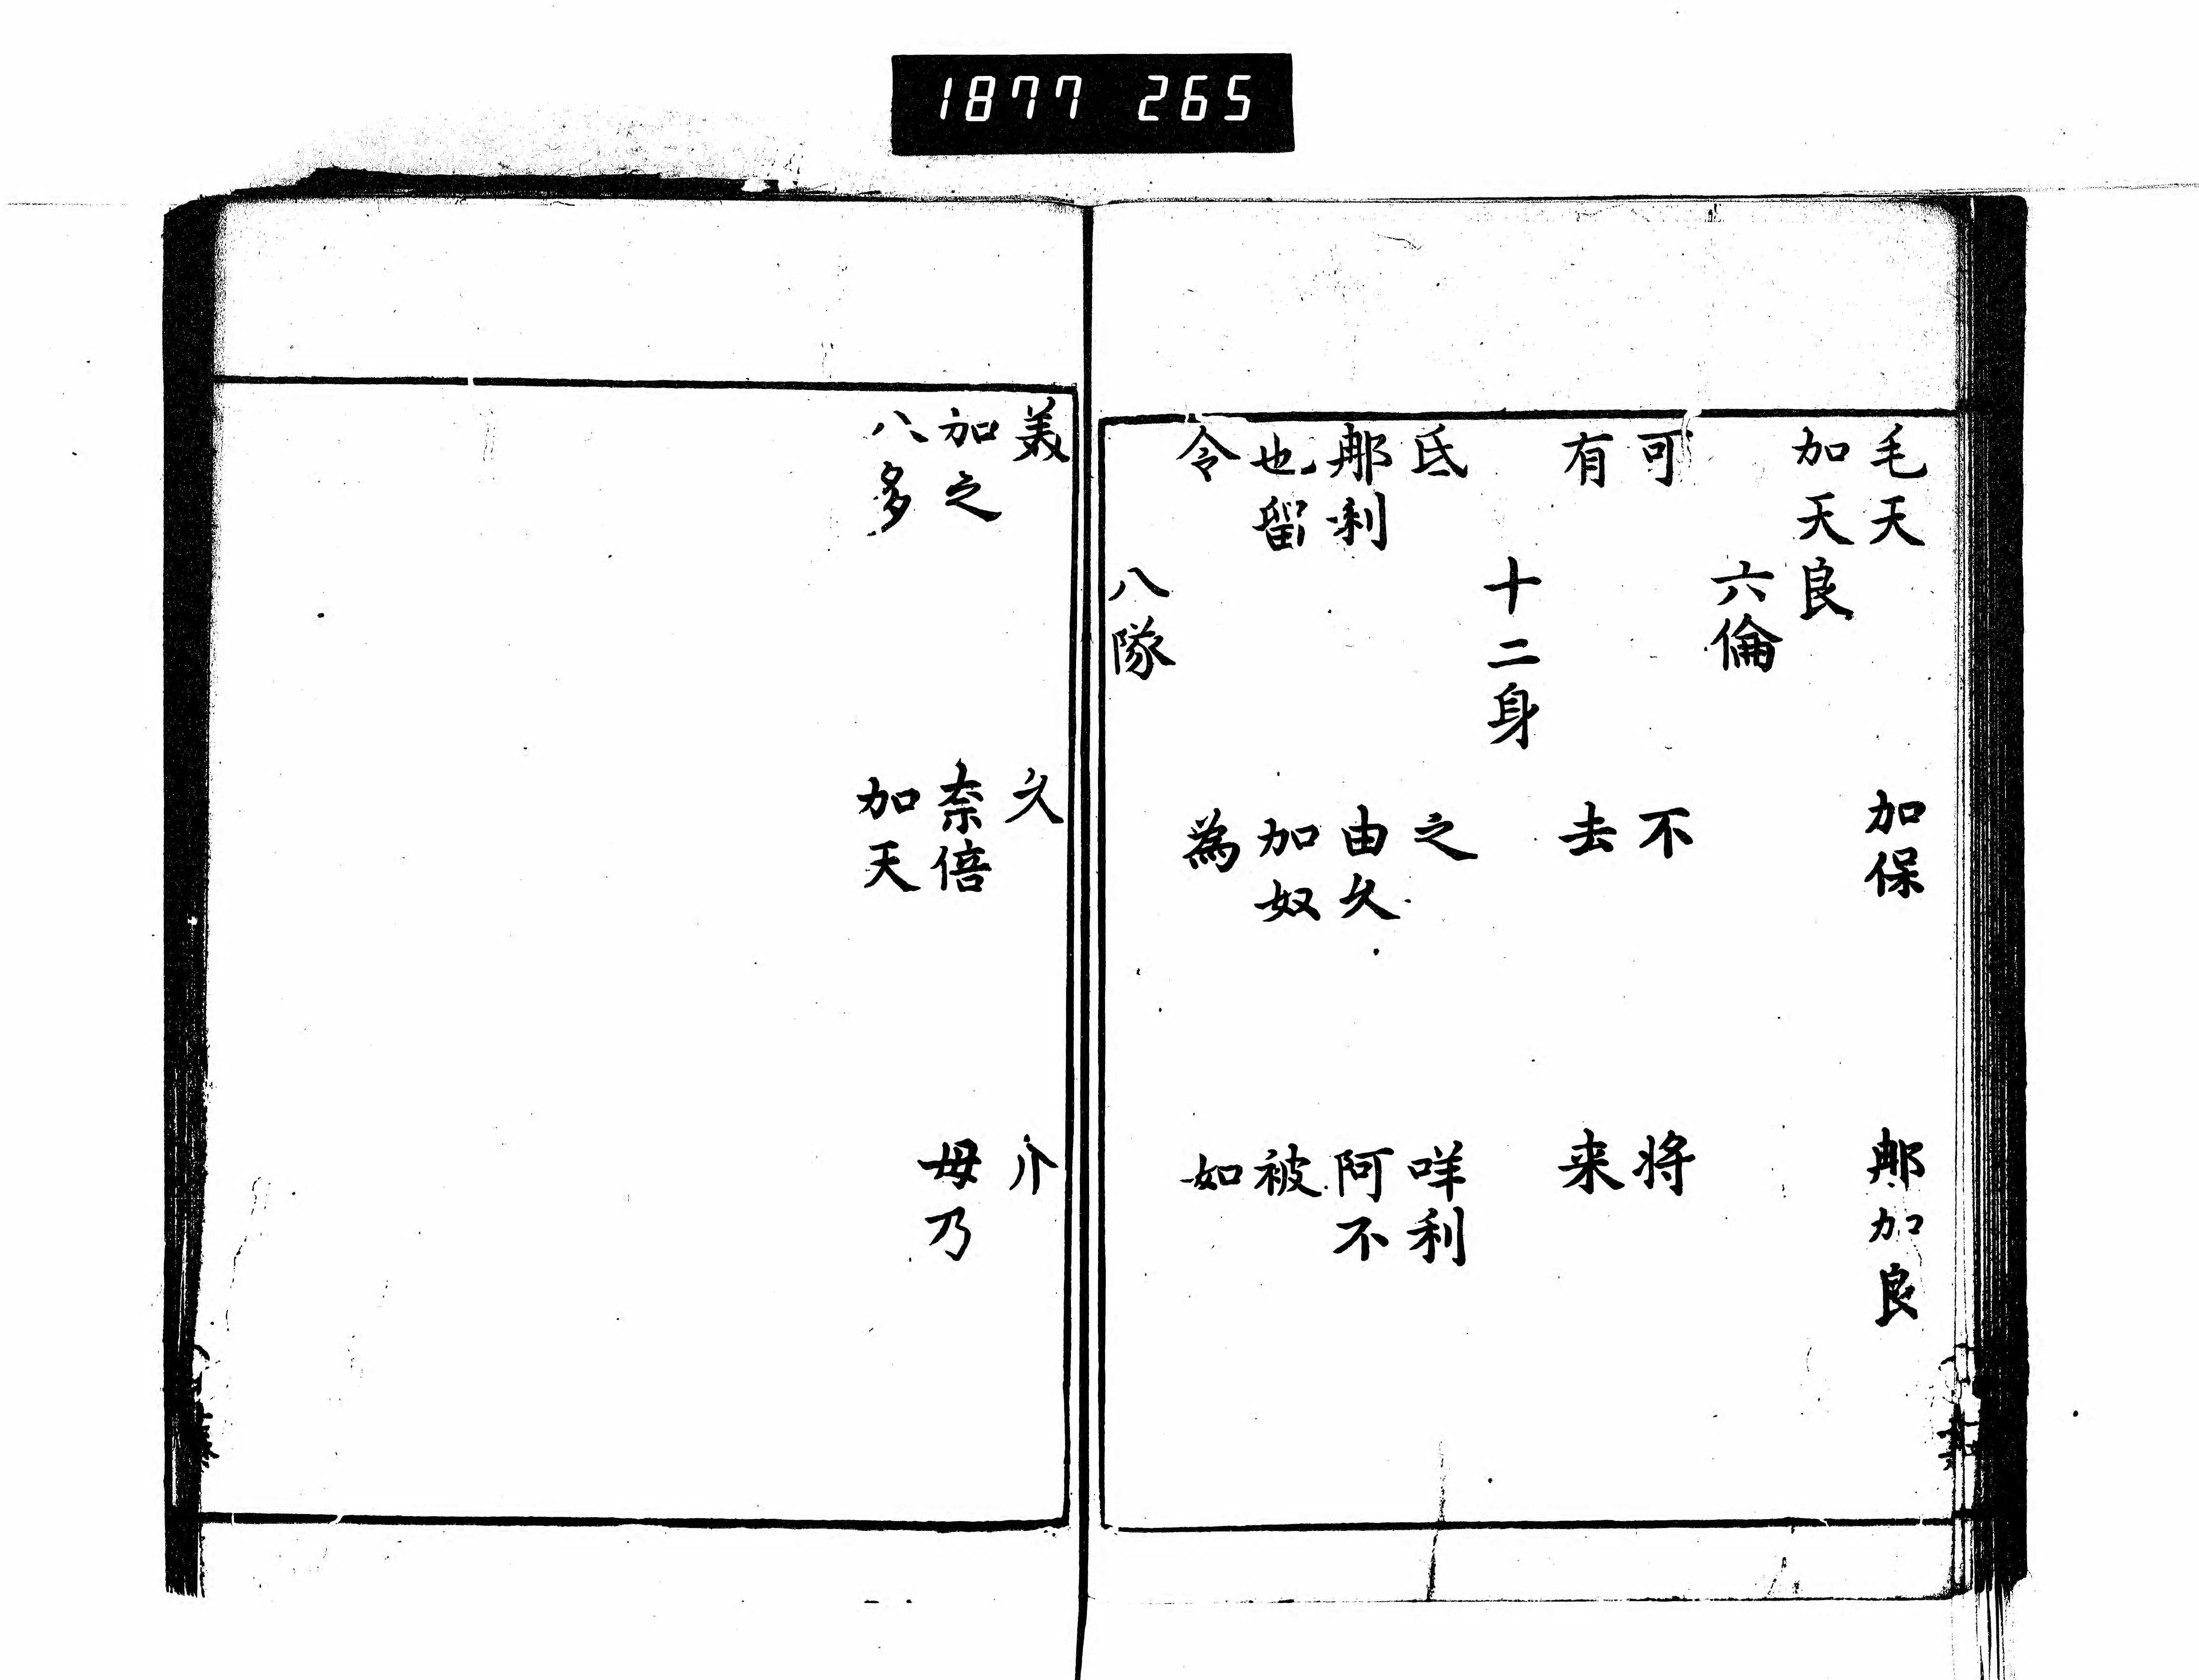 1877 265
毛天 加保 那加良
加天良
六倫
可 不 将
有 去 来
十二身
氐 之 咩利
那利 由久 阿不
也留 加奴 被
令 為 如
八隊
美 久 介
加之 奈倍 毋乃
八多 加天